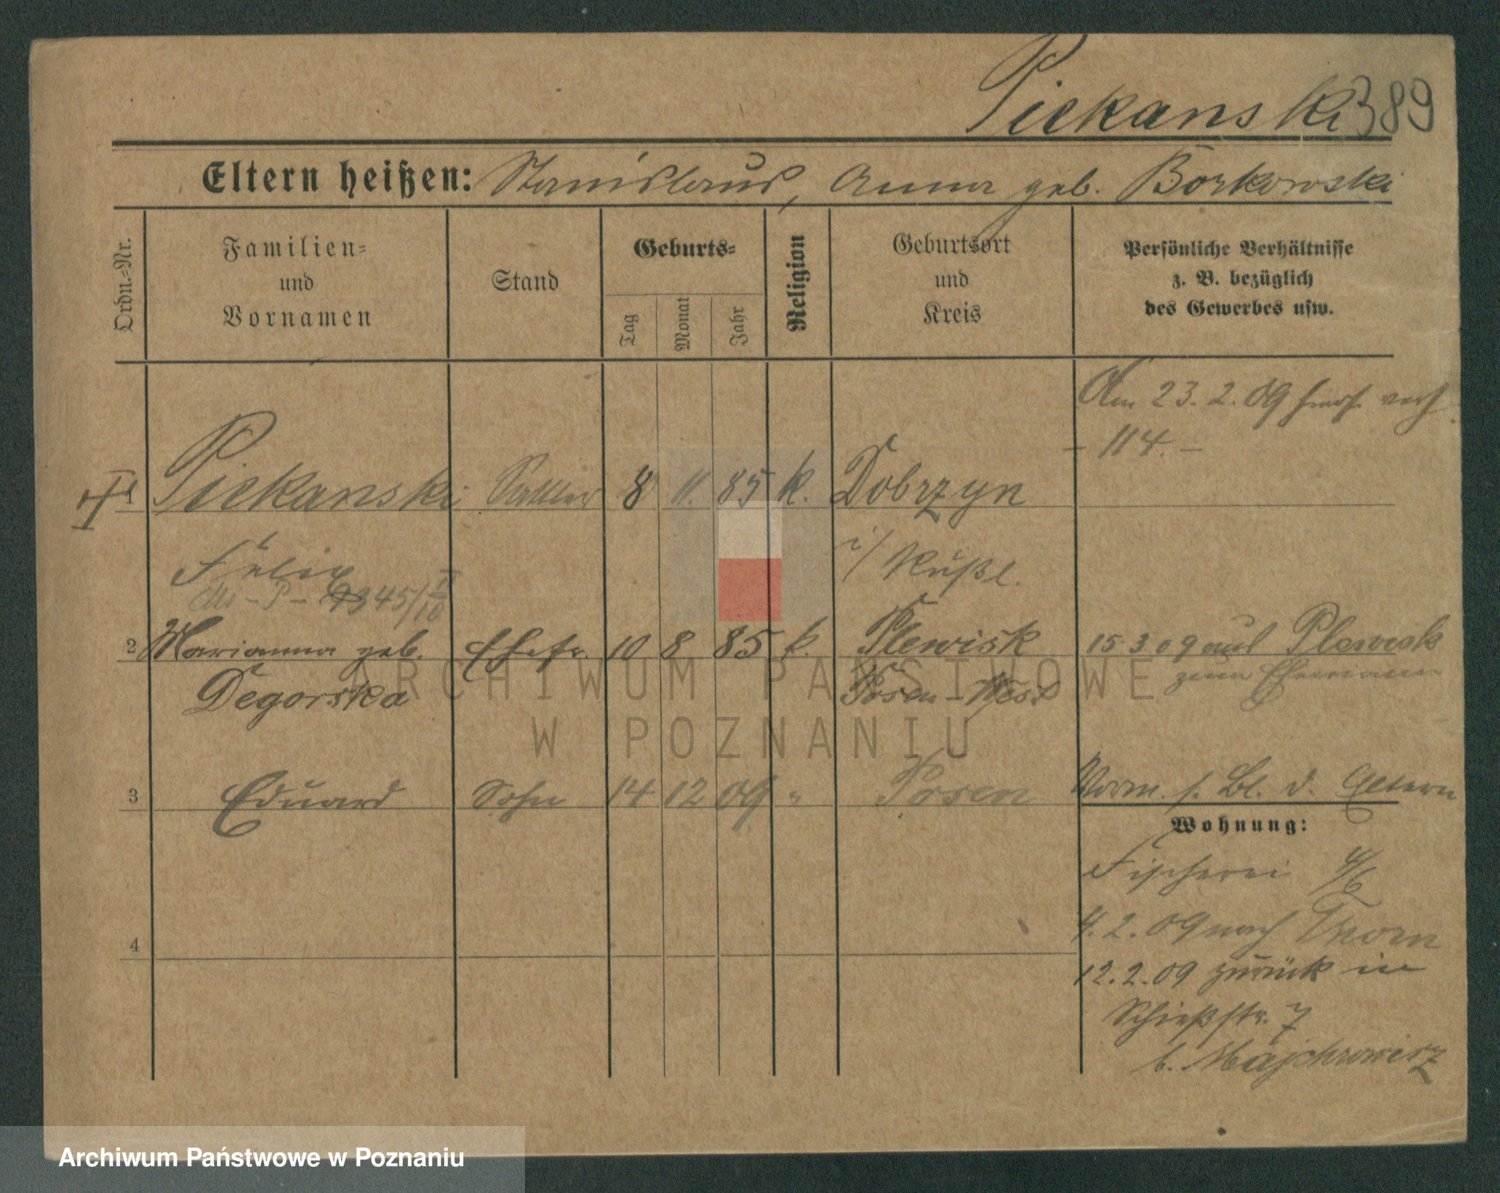 Piekanski 389
Eltern heißen: Stanislaus, Anna geb. Borkowski
Ordn.-Nr.
Familien-
und
Vornamen
Stand
Geburts-
Tag
Monat
Jahr
Religion
Geburtsort
und
Kreis
Persönliche Verhältnisse
z. B. bezüglich
des Gewerbes usw.
Am 23.2.09
- 114. -
1 Piekanski Sattler 8 11. 85 k. Dobrzyn
Felix i/ Rußl.
9345/
2 Marianna geb. Ehefr. 10 8 85 k. Plewisk 15.3.09 aus Plewisk
Degorska Posen-West zum Ehemann
3 Eduard Sohn 14 12 09 " Posen Vorm. s. Bl. d. Eltern
Wohnung:
Fischerei 4/6
4.2.09 nach Thorn
4
12.2.09 zurück in
Schießstr. 7
b. Majchrowicz
ARCHIWUM PAŃSTWOWE
W POZNANIU
Archiwum Państwowe w Poznaniu